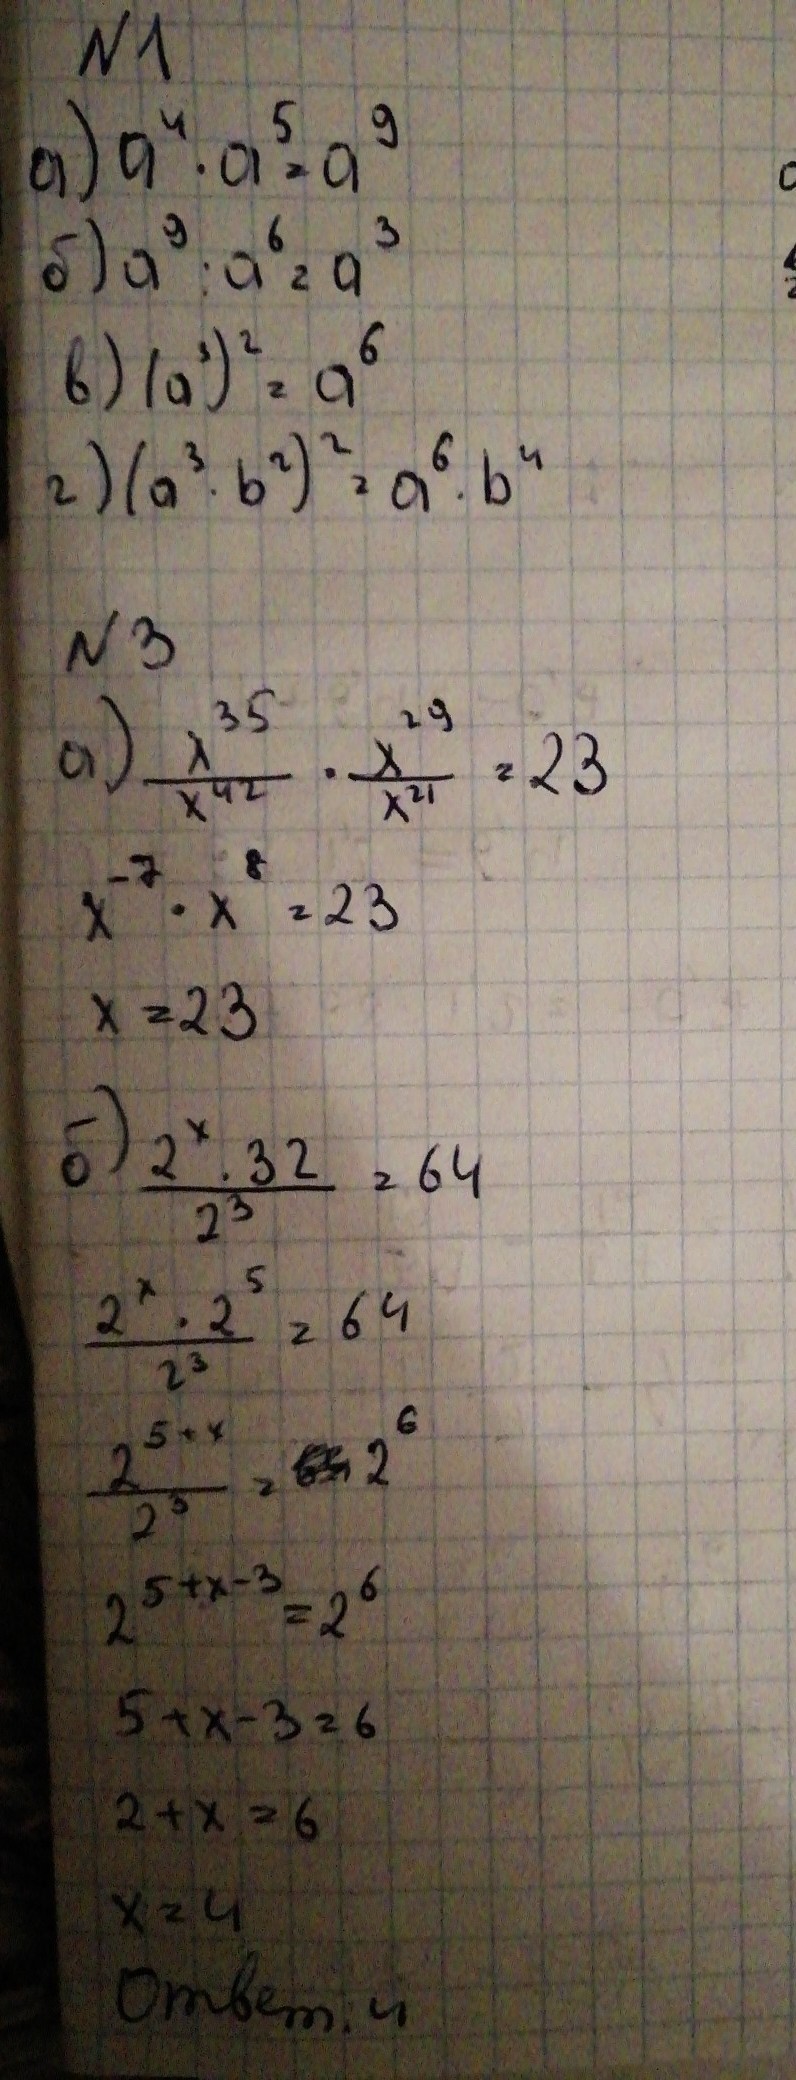 N1
а) a⁴ · a⁵ = a⁹
б) a⁹ : a⁶ = a³
в) (a³)² = a⁶
г) (a³ · b²)² = a⁶ · b⁴
N3
а) x³⁵/x⁴² · x²⁹/x²¹ = 23
x⁻⁷ · x⁸ = 23
x = 23
б) (2ˣ · 32)/2³ = 64
(2ˣ · 2⁵)/2³ = 64
2⁵⁺ˣ/2³ = 2⁶
2⁵⁺ˣ⁻³ = 2⁶
5+x-3=6
2+x=6
x=4
Ответ. 4